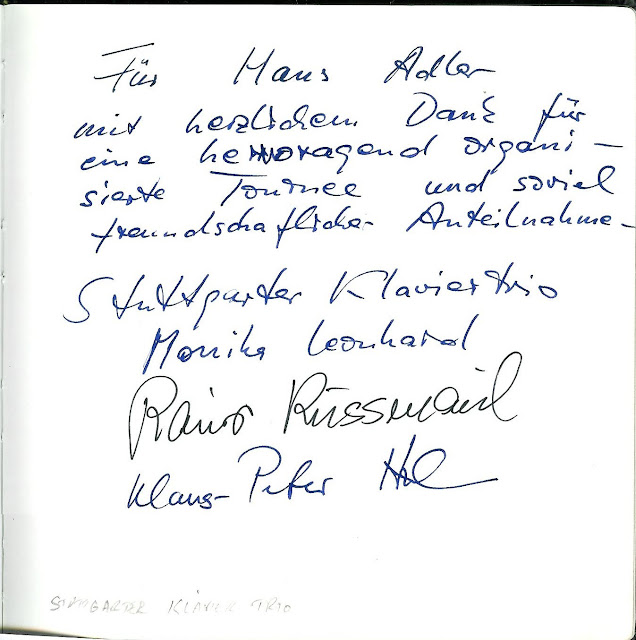 Für Hans Adler
mit herzlichem Dank für
eine hervorragend organi-
sierte Tournee und soviel
freundschaftliche Anteilnahme-
Stuttgarter Klaviertrio
Monika Leonhard
Rainer Kussmaul
Klaus-Peter
STUTTGARTER KLAVIER TRIO